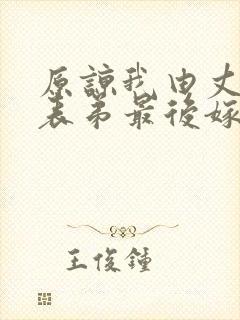 原諒我由丈
表弟最後嫁
王俊鍾